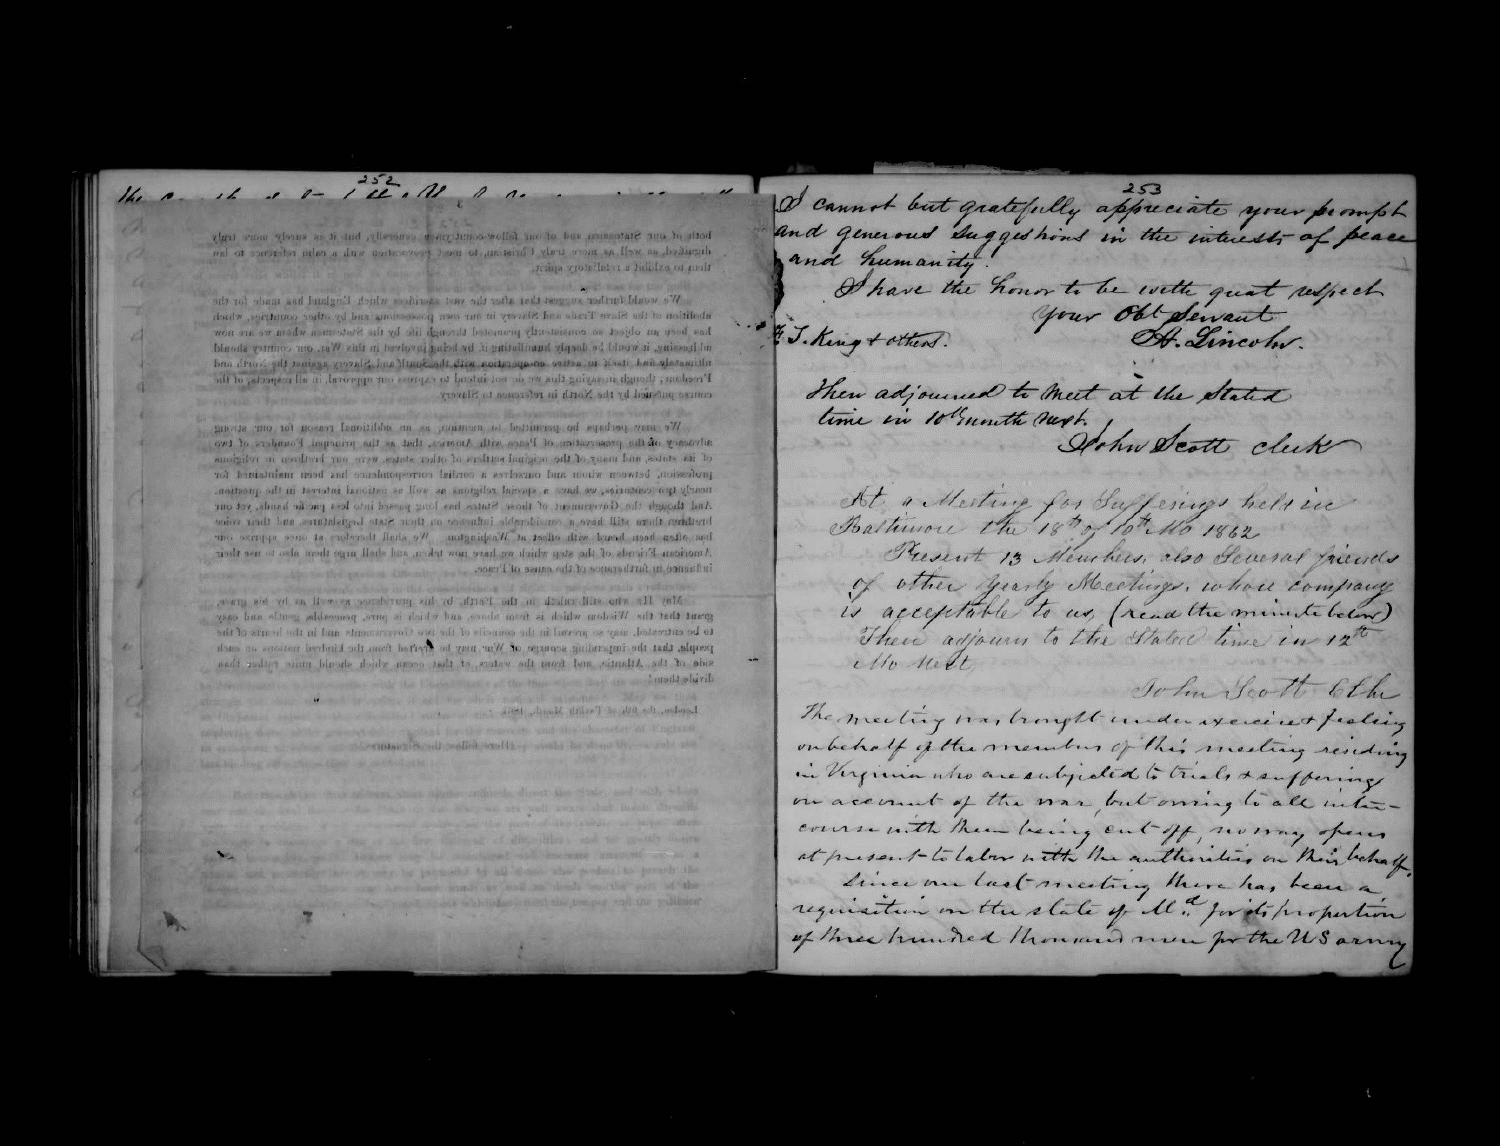 252
both of our Statesmen and of our fellow-countrymen generally, but it is surely more truly
dignified, as well as more truly Christian, to meet provocation with a calm reference to law
than to exhibit a retaliatory spirit.
We would further suggest that after the vast sacrifices which England has made for the
abolition of the Slave Trade and Slavery in our own possessions and by other countries, which
has been an object so consistently promoted through life by the Statesmen whom we are now
addressing, it would be deeply humiliating if, by being involved in this War, our country should
ultimately find itself in active co-operation with the South and Slavery against the North and
Freedom; though in saying this we do not intend to express our approval, in all respects, of the
course pursued by the North in reference to Slavery.
We may perhaps be permitted to mention, as an additional reason for our strong
advocacy of the preservation of Peace with America, that as the principal Founders of two
of its states, and many of the original settlers of other states, were our brethren in religious
profession, between whom and ourselves a cordial correspondence has been maintained for
nearly two centuries, we have a special religious as well as national interest in the question.
And though the Government of those States has long passed into less pacific hands, yet our
brethren there still have a considerable influence on their State Legislatures, and their voice
has often been heard with effect at Washington. We shall therefore at once apprise our
American Friends of the step which we have now taken, and shall urge them also to use their
influence in furtherance of the cause of Peace.
May He who still ruleth in the Earth by his providence as well as by his grace,
grant that the Wisdom which is from above, and which is pure, peaceable gentle and easy
to be entreated, may so prevail in the councils of the two Governments and in the hearts of the
people, that the impending scourge of War may be averted from the kindred nations on each
side of the Atlantic, and from the waters of that ocean which should unite rather than
divide them!
London, the 9th of Twelfth Month, 1861.
(Here follow the Signatures)
253
I cannot but gratefully appreciate your prompt
and generous suggestions in the interests of peace
and humanity.
I have the honor to be with great respect
Your Obt Servant
F. T. King & others. A. Lincoln.
Then adjourned to meet at the Stated
time in 10th month next.
John Scott Clerk
At a Meeting for Sufferings held in
Baltimore the 18th of 10th Mo 1862
Present 13 Members, also Several friends
of other Yearly Meetings, whose company
is acceptable to us, (read the minute below)
Then adjourn to the Stated time in 12th
Mo Next,
John Scott Clk
The meeting was brought under exercise & feeling
on behalf of the members of this meeting residing
in Virginia who are subjected to trials & sufferings
on account of the war, but owing to all inter-
course with them being cut off, no way opens
at present to labor with the authorities on their behalf.
Since our last meeting there has been a
requisition on the state of Md. for its proportion
of three hundred thousand men for the US army